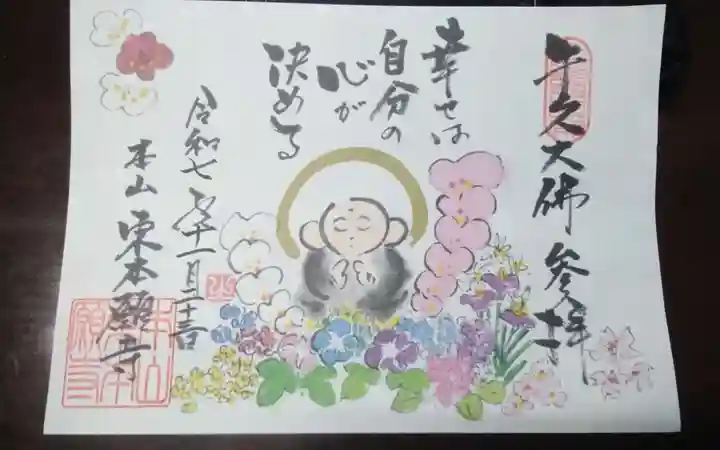 牛久大佛参拝
幸せは
自分の
心が
決める
令和七年十一月二十三日
本山東本願寺